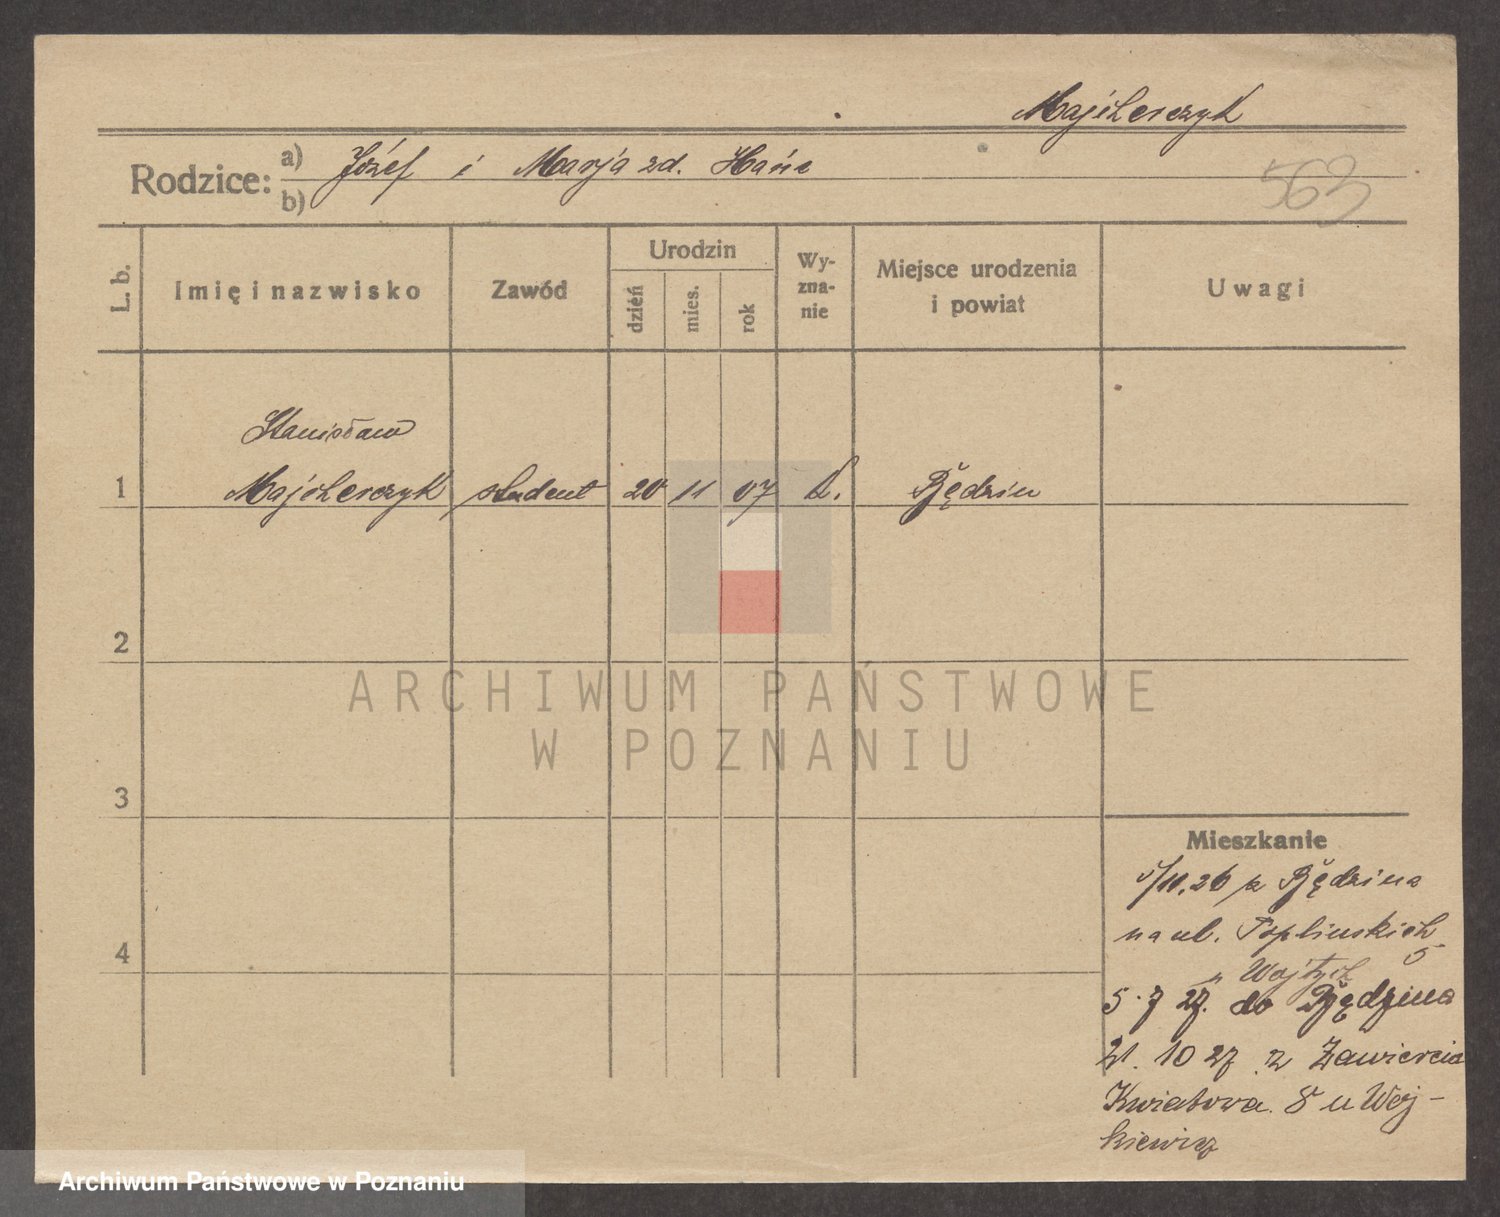 Majcherczyk
Rodzice: a) Józef i Marja zd. Hańc
b)
563
L. b. Imię i nazwisko Zawód Urodzin dzień mies. rok Wy-zna-nie Miejsce urodzenia i powiat Uwagi
Stanisław
1 Majcherczyk student 20 11 07 k. Będzin
2
ARCHIWUM PAŃSTWOWE
W POZNANIU
3
Mieszkanie
5/11.26 z Będzina
na ul. Toplinskich
5
4
u Wojtych
5.7 27. do Będzina
21. 10 27 z Zawiercia
Kwiatowa 8 u Woj-
kiewicz
Archiwum Państwowe w Poznaniu